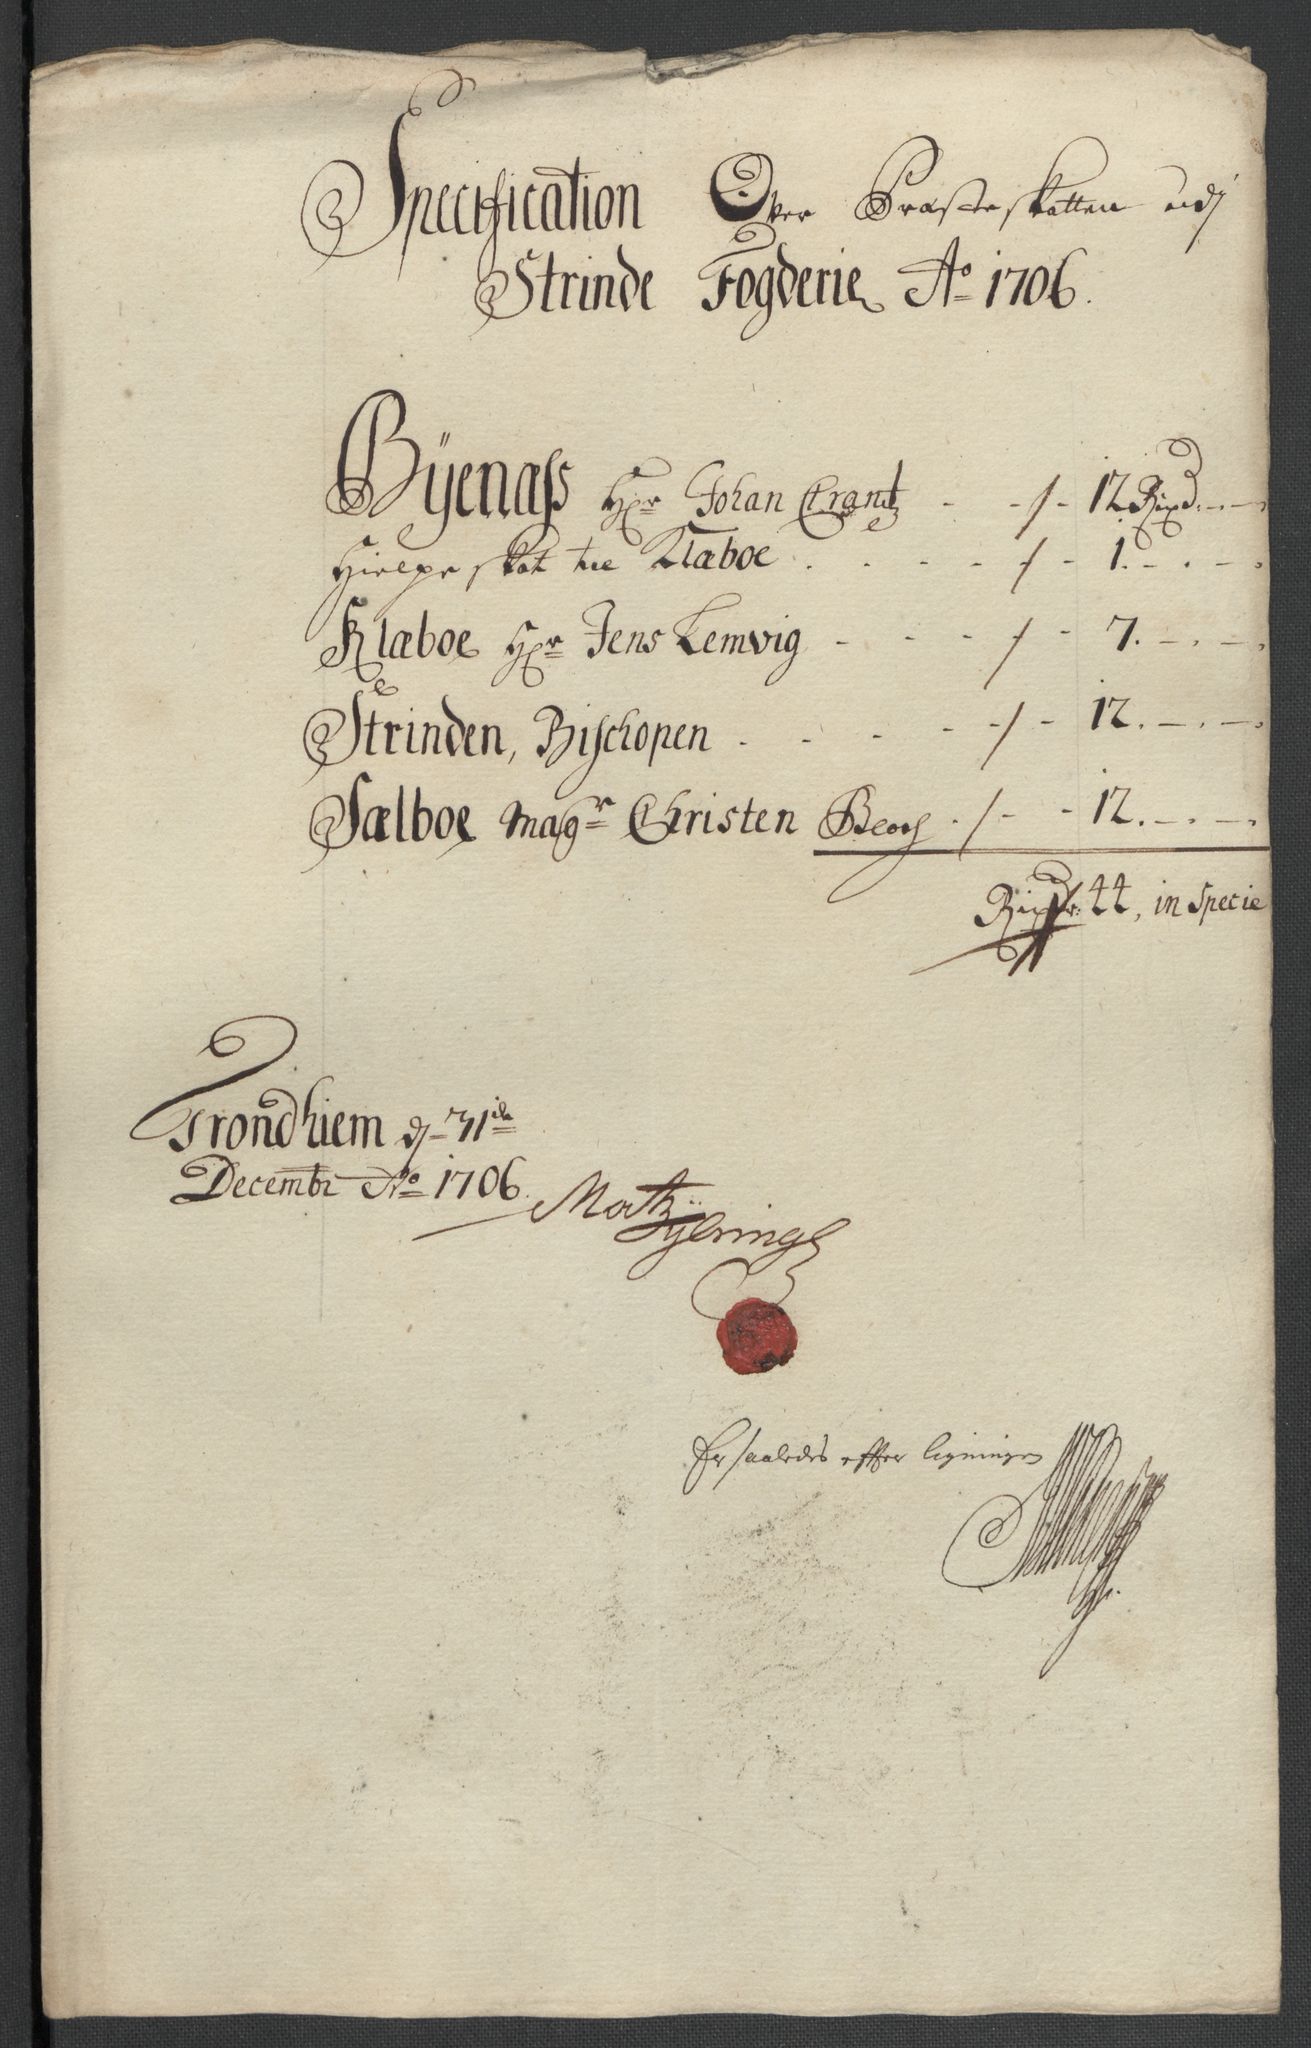 Specification Over Præsteskatten udj
Strinde Fogderie Ao 1706.
Bÿenæss Hr Johan Crantz - - / - 12 Rixd. - . -
Hielpe skat til Klæboe . . - - / - 1. - . - .
Klæboe Hr Jens Lemvig - - - / - 7. - . - .
Strinden, Bischopen - - - - / - 12. - . - .
Sælboe Magr Christen - / - - 12. - . - .
Rixdr: 44, in Specie
Trondhiem d 31te
Decembr Ao 1706.
Er saaledes effter ligningen